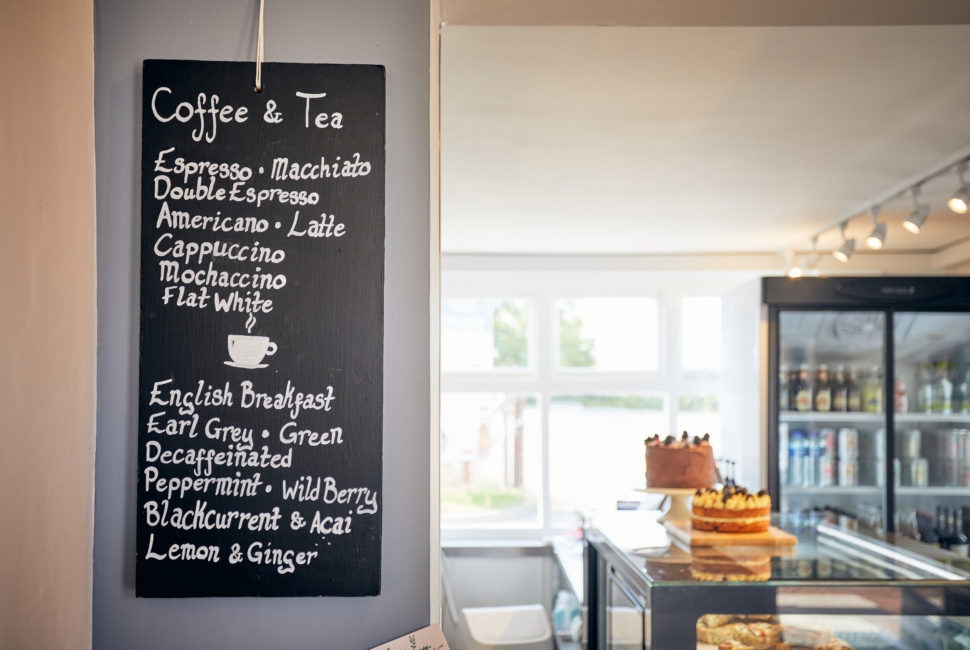 Coffee & Tea
Espresso • Macchiato
Double Espresso
Americano • Latte
Cappuccino
Mochaccino
Flat White
English Breakfast
Earl Grey • Green
Decaffeinated
Peppermint • Wild Berry
Blackcurrent & Acai
Lemon & Ginger